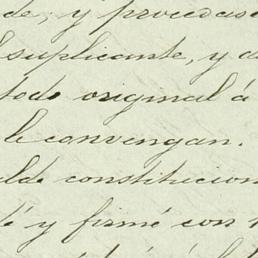 de, y procedase
suplicante, y
todo original á
le convengan.
alde constitucion
y firmé con